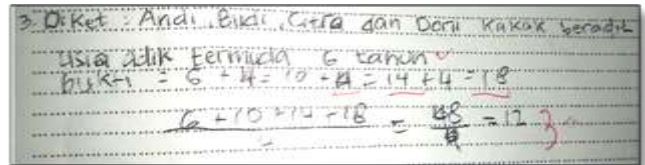 3. Diket : Andi, Budi, Citra dan Doni kakak beradik
usia adik termuda 6 tahun
bukti = 6 + 4 = 10 + 4 = 14 + 4 = 18
6 + 10 + 14 + 18 = 48 = 12
4